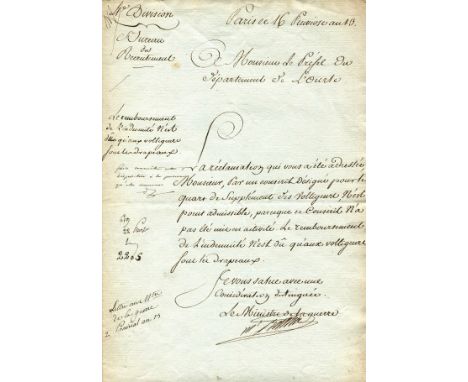 Division
Bureau
des
Recrutement
Paris le 16 Pluviose an 13.
A Monsieur Le Préfet du
Département de L'Ourte
Le remboursement
de l'indemnité n'est
dû qu'aux voltigeurs
sous les drapeaux
La réclamation qui vous a été adressée
Monsieur, Par un conscrit désigné pour le
quart de Supplément des Voltigeurs, N'est
point admissible, parceque ce Conscrit N'a
pas été mis en activité. Le remboursement
de l'indemnité N'est dû qu'aux voltigeurs
sous les drapeaux.
Je vous salue avec une
Considération distinguée.
Le Ministre de la guerre
2205
Lettre au Mtre
de la guerre
2 an 13